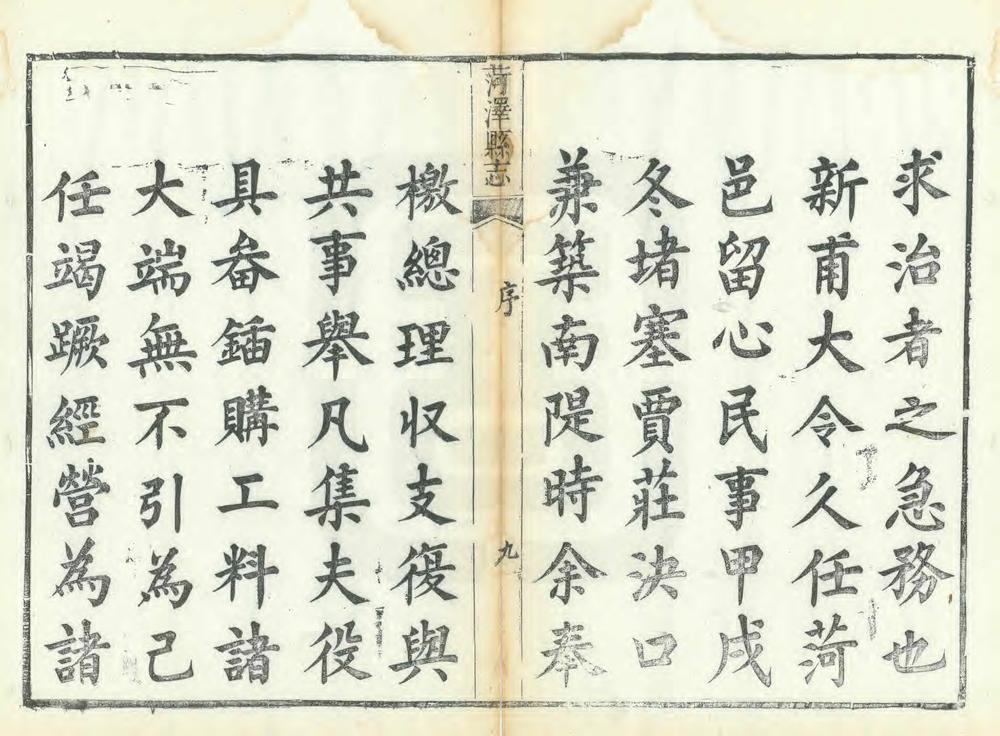 求治者之急務也
新甫大令久任菏
邑留心民事甲戌
冬堵塞賈莊決口
兼築南隄時余奉
菏澤縣志
序
九
檄總理収支復與
共事舉凡集夫役
具畚鍤購工料諸
大端無不引為己
任竭蹶經營為諸